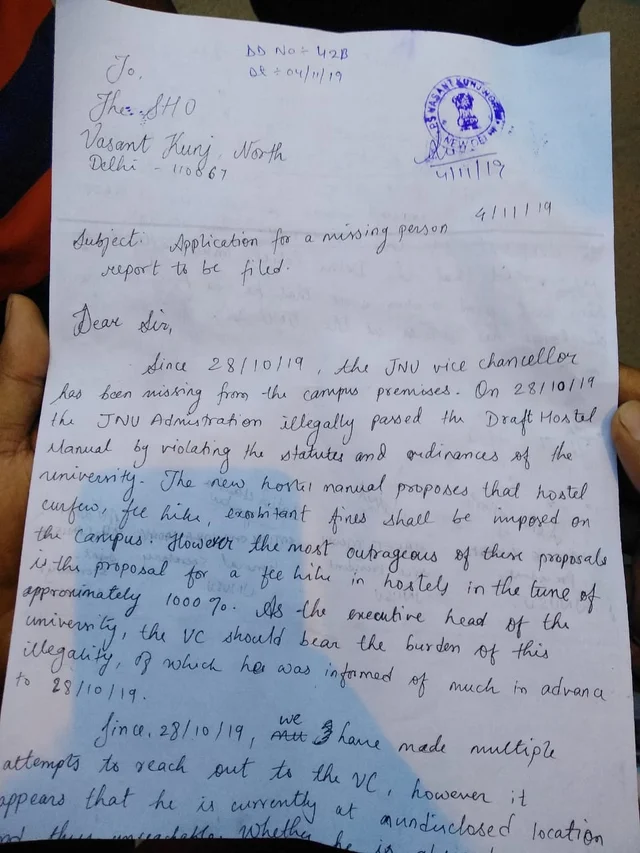 DD No ÷ 42B
Dt ÷ 04/11/19
To,
The SHO
Vasant Kunj, North
Delhi - 110067
P.S VASANT KUNJ NO
NEW DEL
4/11/19
4/11/19
Subject: Application for a missing person
report to be filed.
Dear Sir,
Since 28/10/19, the JNU vice chancellor
has been missing from the campus premises. On 28/10/19
the JNU Admistration illegally passed the Draft Hostel
Manual by violating the statutes and ordinances of the
university. The new hostel manual proposes that hostel
curfew, fee hike, exorbitant fines shall be imposed on
the campus. However the most outrageous of these proposals
is the proposal for a fee hike in hostels in the tune of
approximately 1000%. As the executive head of the
university, the VC should bear the burden of this
illegality, of which he was informed of much in advance
to 28/10/19.
Since, 28/10/19, we have made multiple
attempts to reach out to the VC, however it
appears that he is currently at anundisclosed location
and thus unreachable. Whether he is